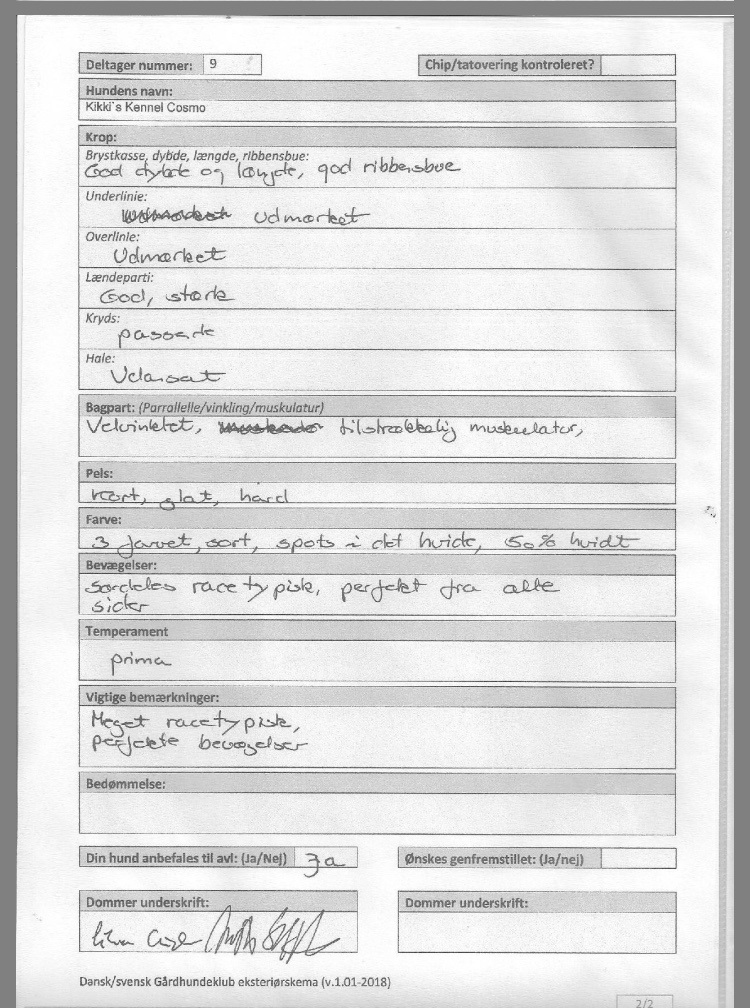 Deltager nummer: 9
Chip/tatovering kontroleret?
Hundens navn:
Kikki`s Kennel Cosmo
Krop:
Brystkasse, dybde, længde, ribbensbue:
God dybde og længde, god ribbensbue
Underlinie:
Udmærket
Overlinie:
Udmærket
Lændeparti:
God, stærk
Kryds:
passende
Hale:
Velansat
Bagpart: (Parrallelle/vinkling/muskulatur)
Velvinklet, tilstrækkelig muskulatur,
Pels:
Kort, glat, hård
Farve:
3 farvet, sort, spots i det hvide, 50% hvidt
Bevægelser:
Særdeles racetypisk, perfekt fra alle
sider
Temperament
prima
Vigtige bemærkninger:
Meget racetypisk,
perfekte bevægelser
Bedømmelse:
Din hund anbefales til avl: (Ja/Nej) Ja
Ønskes genfremstillet: (Ja/nej)
Dommer underskrift:
Dommer underskrift:
Dansk/svensk Gårdhundeklub eksteriørskema (v.1.01-2018)
2/2